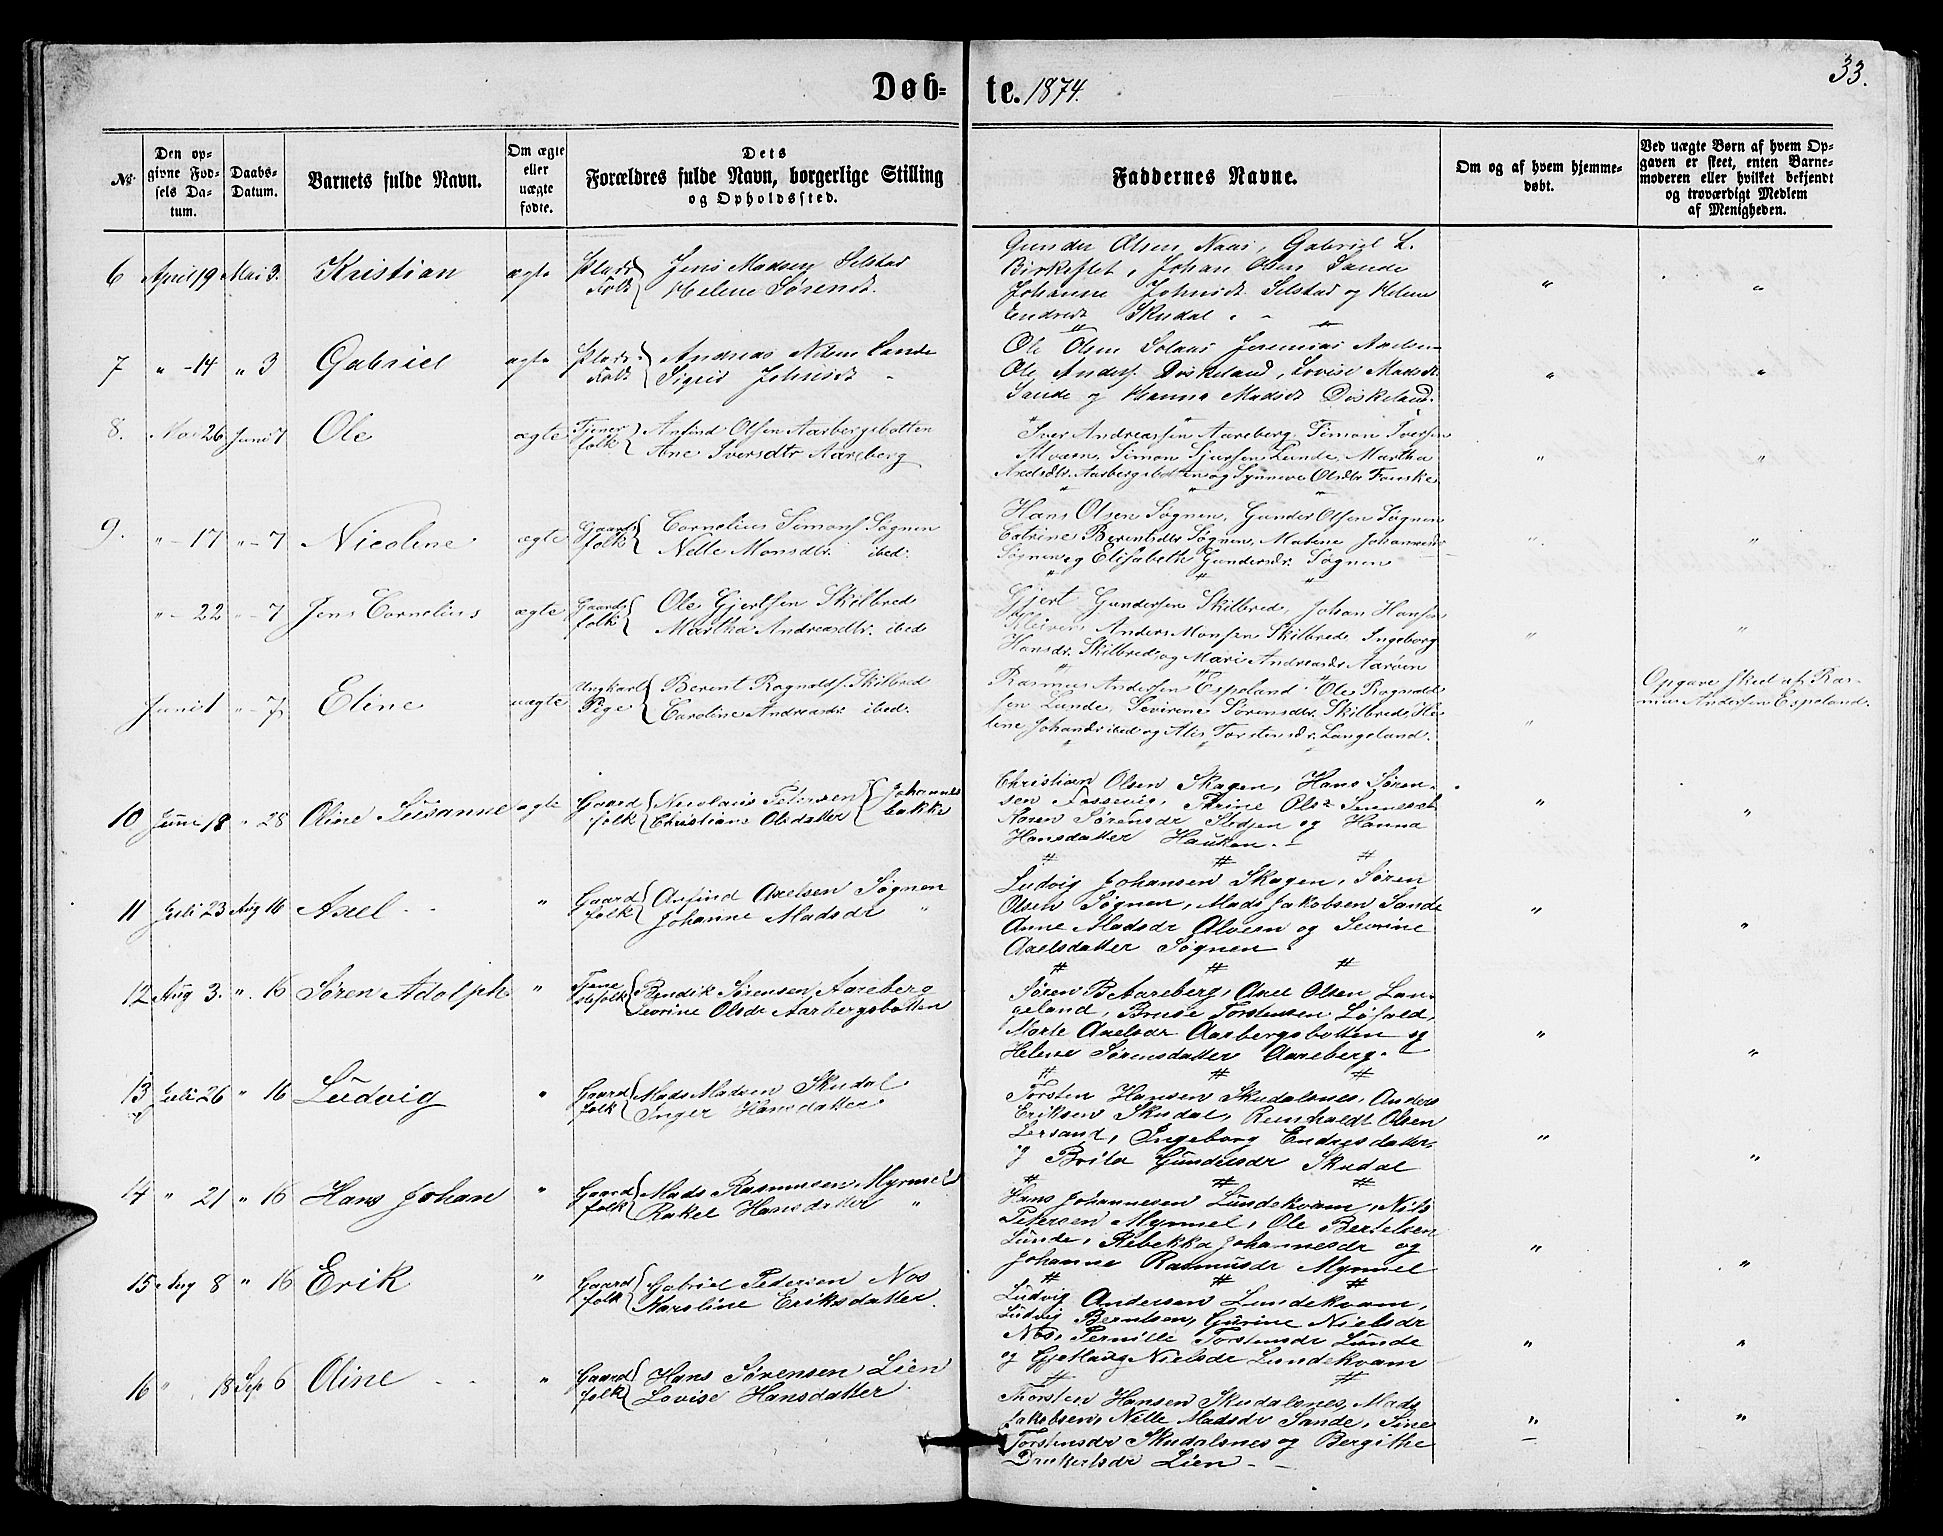 Døb-te. 1874.
33.
№
Den opgivne Fødsels Datum.
Daabs-Datum.
Barnets fulde Navn.
Om ægte eller uægte fødte.
Dets Forældres fulde Navn, borgerlige Stilling og Opholdssted.
Faddernes Navne.
Om og af hvem hjemmedøbt.
Ved uægte Børn af hvem Opgaven er skeet, enten Barnemoderen eller hvilket bekjendt og troværdigt Medlem af Menigheden.
6 April 19 Mai 3. Kristian ægte Plads Folk Jens Madsen Selstad
Helene Sørensd.
Gunder Olsen Naas, Gabriel L.
Birkeflet, Johan Olsen Sande
Johanne Johnsdt. Selstad og Helene
Endresdt Skudal
7 " - 14 " 3 Gabriel ægte Plads Folk Andreas Nilsen Sande
Sigrid Johnsdt
Ole Olsen Solaas Jeremias
Ole Anders. Diskeland, Lovise Madsdt
Sande og Hanna Madsdt Diskeland.
8. 26 Juni 7 Ole ægte Tjener folk Anfind Olsen Aarbergsbotten
Ane Iversdtr Aareberg
Iver Andreassen Aareberg, Simon Iversen
Alværn, Simon Sjursen Lunde, Martha
Axelsdtr. Aarbergsbotten og Synneve Olsdtr Fauske
9. " - 17 " - 7 Nicoline ægte Gaards folk Cornelius Simons. Søgnen
Nelle Monsdtr. ibed.
Hans Olsen Søgnen, Gunder Olsen Søgnen
Catrine Berentsdtr Søgnen, Matene Johannesdr
Søgnen og Elisabeth Gundersdr. Søgnen
" - 22 " - 7 Jens Cornelius ægte Gaards folk Ole Gjertsen Skilbred
Martha Andreasdtr. ibed
Gjert Gundersen Skilbred, Johan Hansen
Kleiven Anders Monsen Skilbred, Ingeborg
Hansdr. Skilbred, og Mari Andreasdr Aarøen
Juni 1 " - 7 Eline uægte Ungkarl Pige Berent Ragnalds. Skilbred
Caroline Andreasdr. ibed.
Rasmus Andersen Espeland Ole Ragnald
sen Lunde, Sevirene Sørensdtr. Skilbred, He
lene Johansdr ibed og Alis Torstensdr. Langeland.
Opgave skeet af Ras-
mus Andersen Espeland.
10 Juni 18 " 28 Oline Susanne ægte Gaard folk Nicolaus Petersen
Christiane Olsdatter
Johannes bakke
Christian Olsen Skagen, Hans Søren-
sen Fossevig, Trine Ols
Maren Sørensdr Stedjen og Hanna
Hansdatter Hauken.
11 Juli 23 Aug 16 Axel " Gaard folk Anfind Axelsen Søgnen
Johanne Madsdr "
Ludvig Johansen Skagen, Søren
Olsen Søgnen, Mads Jakobsen Sande
Anne Madsdr Alvern og Sevrine
Axelsdatter Søgnen
12 Aug 3. " 16 Søren Adolph " Tjene stefolk Bendik Sørensen Aareberg
Sevrine Olsdr Aarbergsbotten
Søren B. Aareberg, Axel Olsen Lan-
geland, Bruse Torstensen Løfald,
Marte Axelsdr Aarbergsbotten og
Helene Sørensdatter Aareberg.
13 Juli 26 " 16 Ludvig " Gaard folk Mads Madsen Skudal
Inger Hansdatter
Torsten Hansen Skudalsnes, Anders
Eriksen Skudal, Reinholdt Olsen
Lersand, Ingeborg Endresdatter,
og Brita Gundersdr Skudal
14 " 21 " 16 Hans Johan " Gaard folk Mads Rasmussen Myrmel
Rakel Hansdatter "
Hans Johannesen Lundekvam, Nils
Petersen Myrmel, Ole Bertelsen
Lunde, Rebekka Johannesdr og
Johanne Rasmusdr Myrmel
15 Aug 8 " 16 Erik " Gaard folk Gabriel Pedersen Nos
Karoline Eriksdatter.
Ludvig Andersen Lundekvam,
Ludvig Berntsen, Gurine Nielsdr
Nos, Pernille Torstensdr Lunde
og Nielsdr Lundekvam
16 " 18 Sep 6 Oline " Gaard folk Hans Sørensen Lien
Lovise Hansdatter
Thorsten Hansen Skudalsnes, Mads
Jakobsen, Nille Madsdr Sande, Sine
Torstensdr Skudalsnes og Bergithe
Drukertsdr Lien